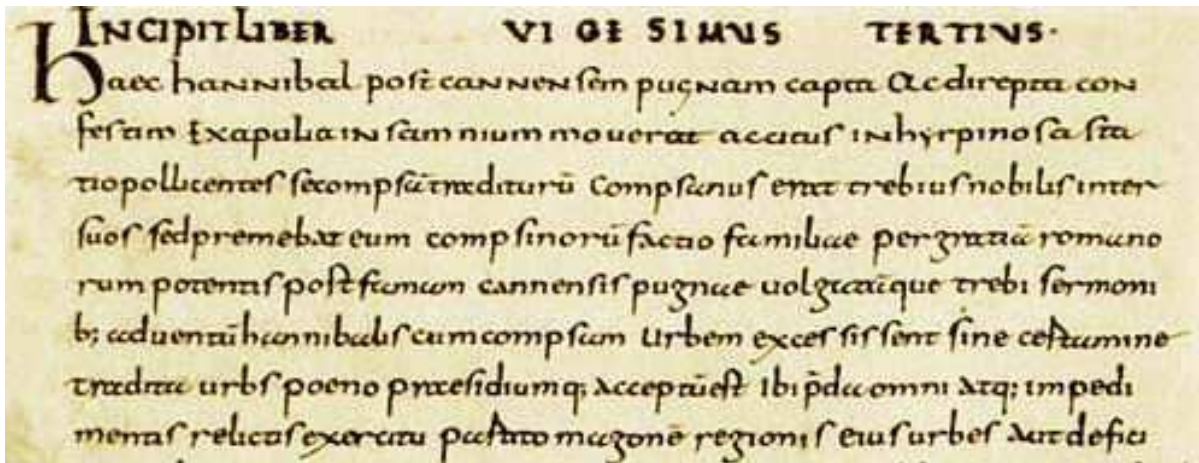 INCIPIT LIBER VIGESIMUS TERTIUS·
haec hannibal post cannensem pugnam capta ac direpta con
festim ex apulia in samnium moverat accitus in hyrpinos a sta
tio pollicentes se compsā traditurū compsanus erat trebius nobilis inter
suos sed premebat eum compsinorū factio familiae per gratiā romano
rum potentis post famam cannensis pugnae volgatāque trebi sermoni
b; adventū hannibalis cum compsam urbem excessissent sine certamine
tradita urbs poeno praesidiumq; acceptū est ibi p̄da omni atq; impedi
mentis relictis exercitu partito magonē regionis eius urbes aut defici